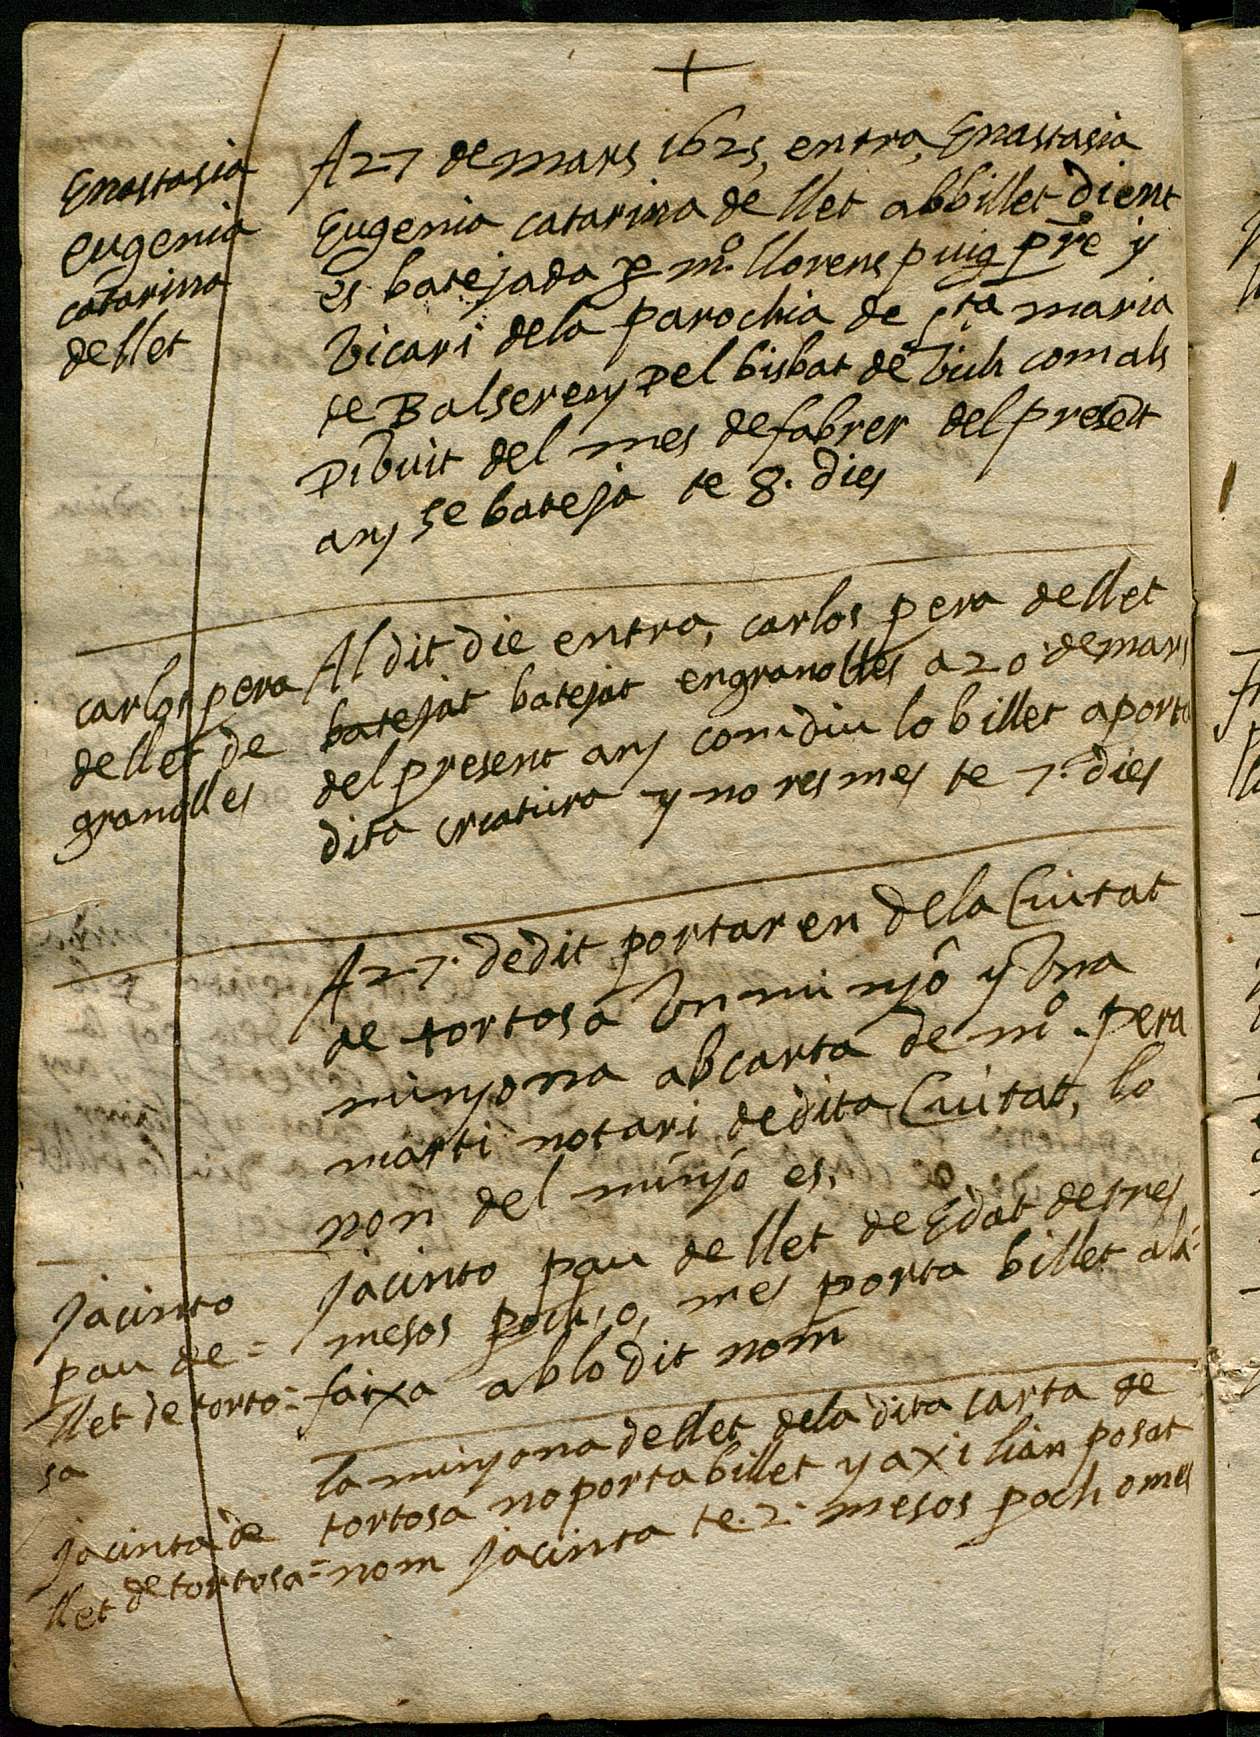 +
Enastasia
eugenia
catarina
de llet
A 27 de mars 1625, entra, Enastasia
Eugenia catarina de llet ab billet dient
es batejada p mº. llorens puig pre y
vicari dela parochia de sta maria
de Balsereny del bisbat de vich com als
dibuit del mes de fabrer del present
any se bateja te 8. dies
carlos pera
de llet de
granolles
Al dit die entra, carlos pera de llet
batejat batejat en granolles a 20 de mars
del present any com diu lo billet aporta
dita criatura y no res mes te 7. dies
A 27. de dit portaren dela Ciutat
de tortosa vn minyó y vna
minyona ab carta de mº. pera
marti notari de dita Ciutat, lo
non del minyó es.
Jacinto
pau de=
llet de torto=
sa
Jacinto pau de llet de Edat de tres
mesos poch, o, mes porta billet ala=
faixa ab lo dit nom
Jacinta de
llet de tortosa=
la minyona de llet dela dita carta de
tortosa no porta billet y axi lian posat
nom Jacinta te. 2. mesos poch o mes